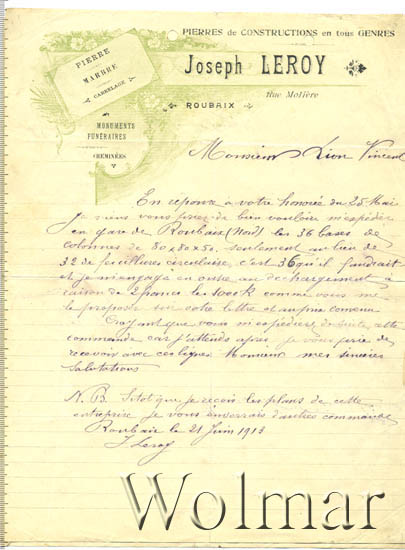 PIERRES de CONSTRUCTIONS en tous GENRES
Joseph LEROY
Rue Molière
ROUBAIX
PIERRE
MARBRE
CARRELAGE
MONUMENTS
FUNÉRAIRES
CHEMINÉES
Monsieur Lion Vincent
En réponse à votre honorée du 25 Mai
Je viens vous prier de bien vouloir m'expédier
en gare de Roubaix (Nord) les 36 bases de
colonnes de 80x80x50 seulement au lieu de
32 de circulaire, c'est 36 qu'il faudrait
et je m'engage en outre au déchargement à
raison de 2 francs les 1000 K comme vous me
le proposez sur votre lettre et au prix convenu
Croyant que vous m'expédierez de suite cette
commande car j'attends après, je vous prie de
recevoir avec ces lignes Monsieur mes sincères
Salutations
N. B. Sitôt que je reçois les plans de cette
entreprise je vous d'autres commandes
Roubaix le 21 Juin 1913
J Leroy
Wolmar